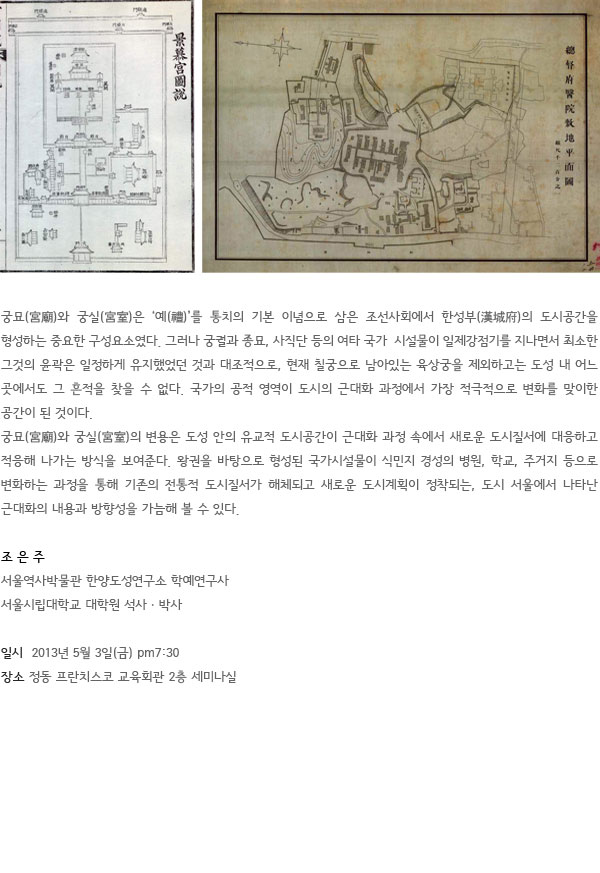 景慕宮圖說
總督府醫院敷地平面圖
궁묘(宮廟)와 궁실(宮室)은 ‘예(禮)’를 통치의 기본 이념으로 삼은 조선사회에서 한성부(漢城府)의 도시공간을
형성하는 중요한 구성요소였다. 그러나 궁궐과 종묘, 사직단 등의 여타 국가 시설물이 일제강점기를 지나면서 최소한
그것의 윤곽은 일정하게 유지했었던 것과 대조적으로, 현재 칠궁으로 남아있는 육상궁을 제외하고는 도성 내 어느
곳에서도 그 흔적을 찾을 수 없다. 국가의 공적 영역이 도시의 근대화 과정에서 가장 적극적으로 변화를 맞이한
공간이 된 것이다.
궁묘(宮廟)와 궁실(宮室)의 변용은 도성 안의 유교적 도시공간이 근대화 과정 속에서 새로운 도시질서에 대응하고
적응해 나가는 방식을 보여준다. 왕권을 바탕으로 형성된 국가시설물이 식민지 경성의 병원, 학교, 주거지 등으로
변화하는 과정을 통해 기존의 전통적 도시질서가 해체되고 새로운 도시계획이 정착되는, 도시 서울에서 나타난
근대화의 내용과 방향성을 가늠해 볼 수 있다.
조 은 주
서울역사박물관 한양도성연구소 학예연구사
서울시립대학교 대학원 석사 · 박사
일시 2013년 5월 3일(금) pm7:30
장소 정동 프란치스코 교육회관 2층 세미나실